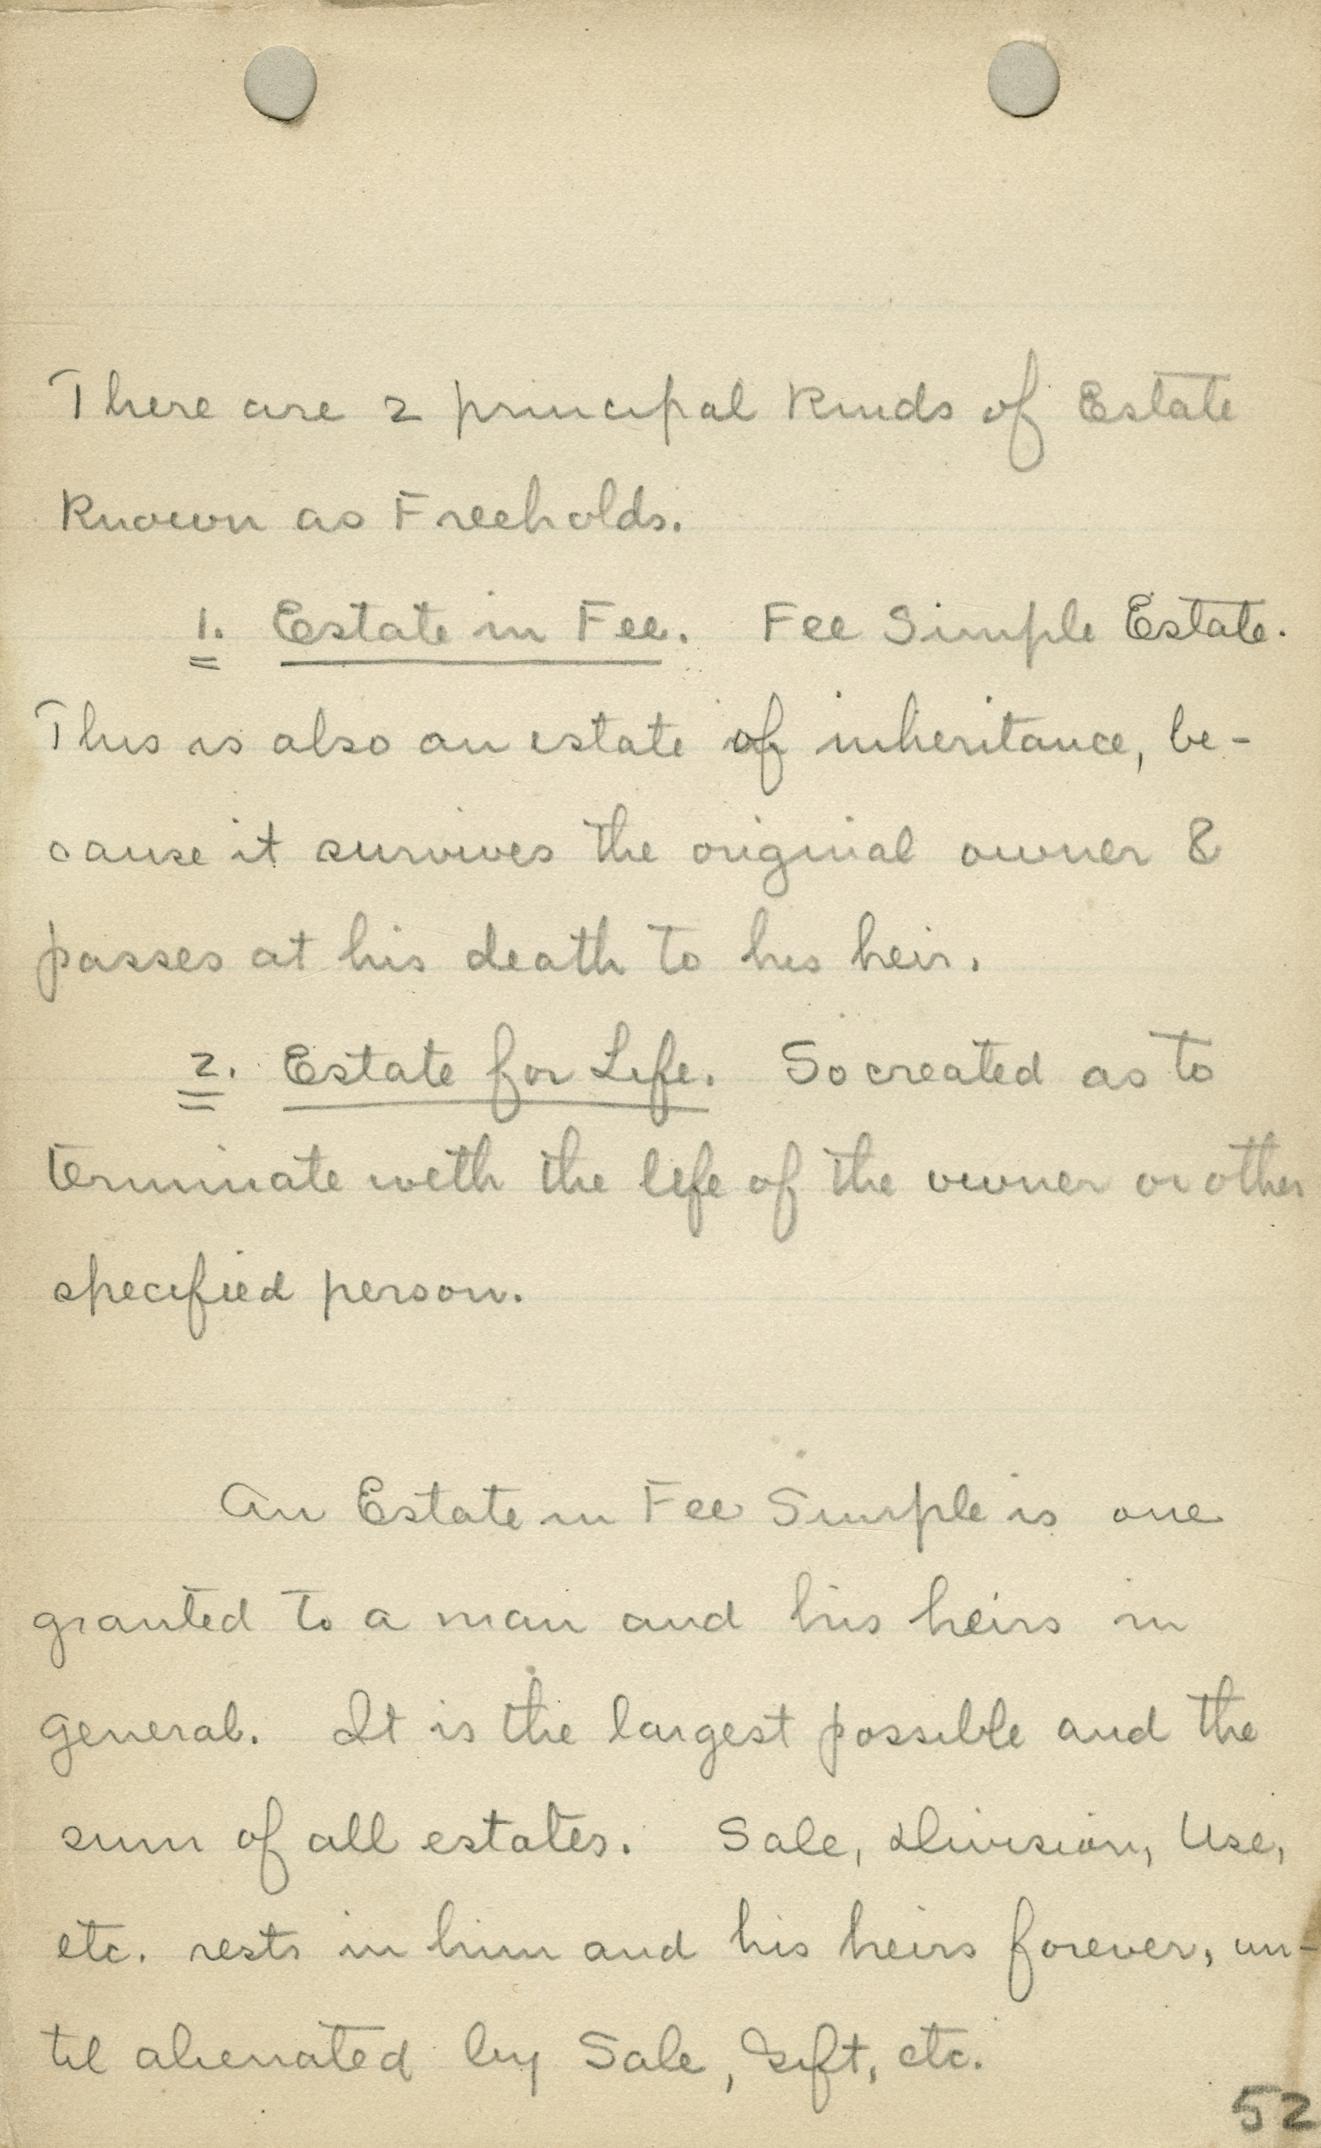 There are 2 principal kinds of Estate
known as Freeholds.
1. Estate in Fee. Fee Simple Estate.
This is also an estate of inheritance, be-
cause it survives the original owner &
passes at his death to his heir.
2. Estate for Life. So created as to
terminate with the life of the owner or other
specified person.
An Estate in Fee Simple is one
granted to a man and his heirs in
general. It is the largest possible and the
sum of all estates. Sale, Division, Use,
etc. rests in him and his heirs forever, un-
til alienated by Sale, Gift, etc.
52